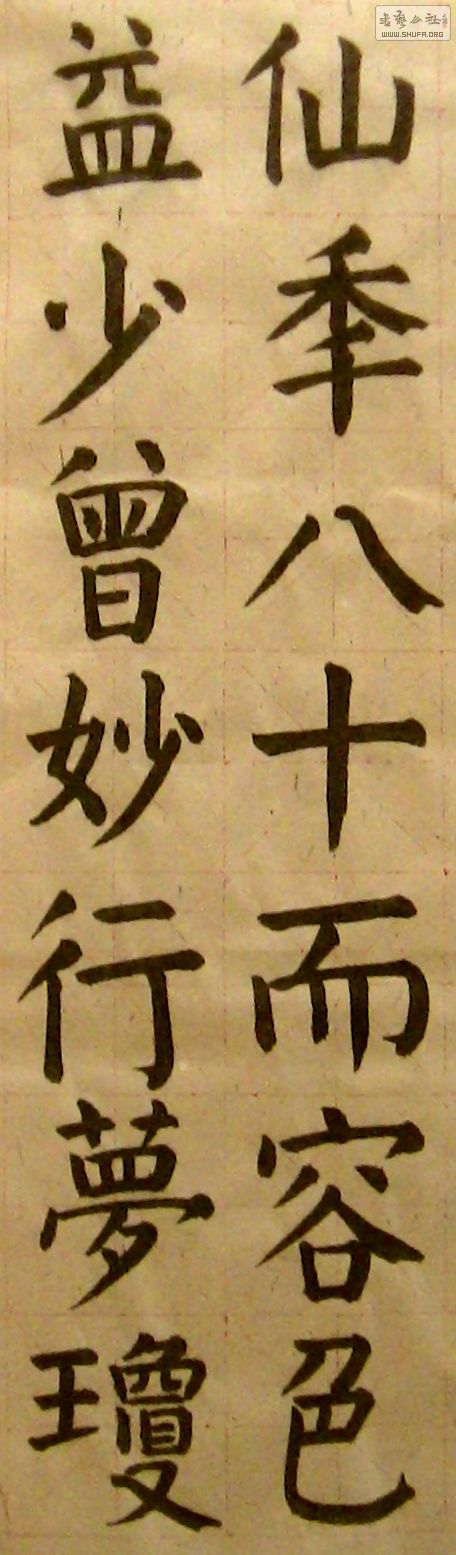 仙秊八十而容色
益少曾妙行夢瓊
書藝公社
WWW.SHUFA.ORG